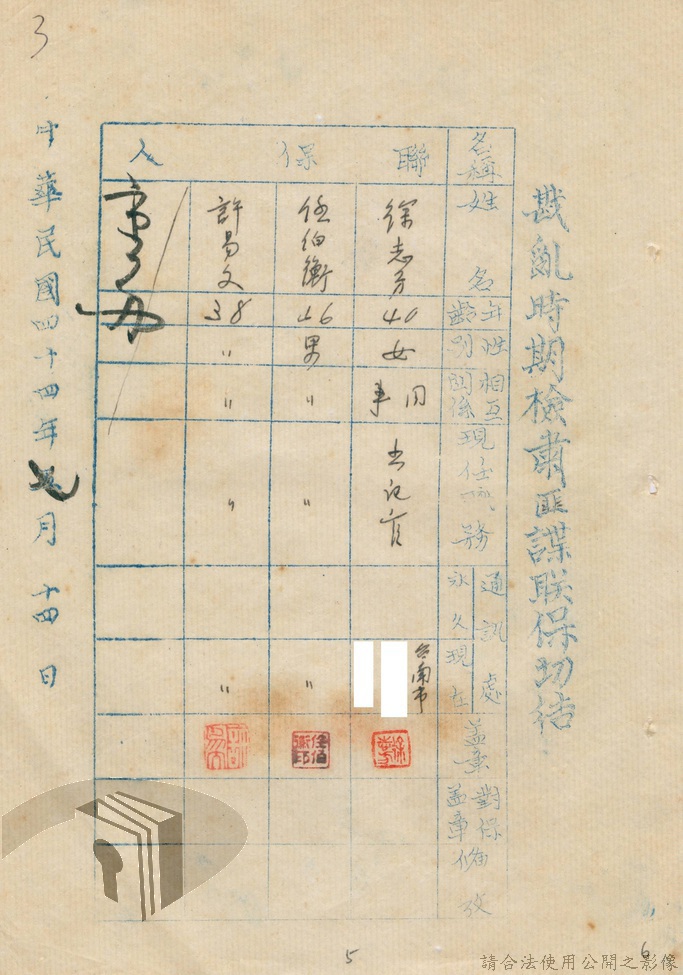 3
戡亂時期檢肅匪諜联保切结
名稱
聯保人
姓名
徐志方
任伯衡
許易文
年齡
40
46
38
性別
女
男
〃
相互関係
同事
〃
〃
現任職務
书记官
〃
〃
通訊處
永久
現在
台南市
〃
〃
蓋章
任伯衡印
對保蓋章
備攷
中華民國四十四年
月十四日
5
6
請合法使用公開之影像